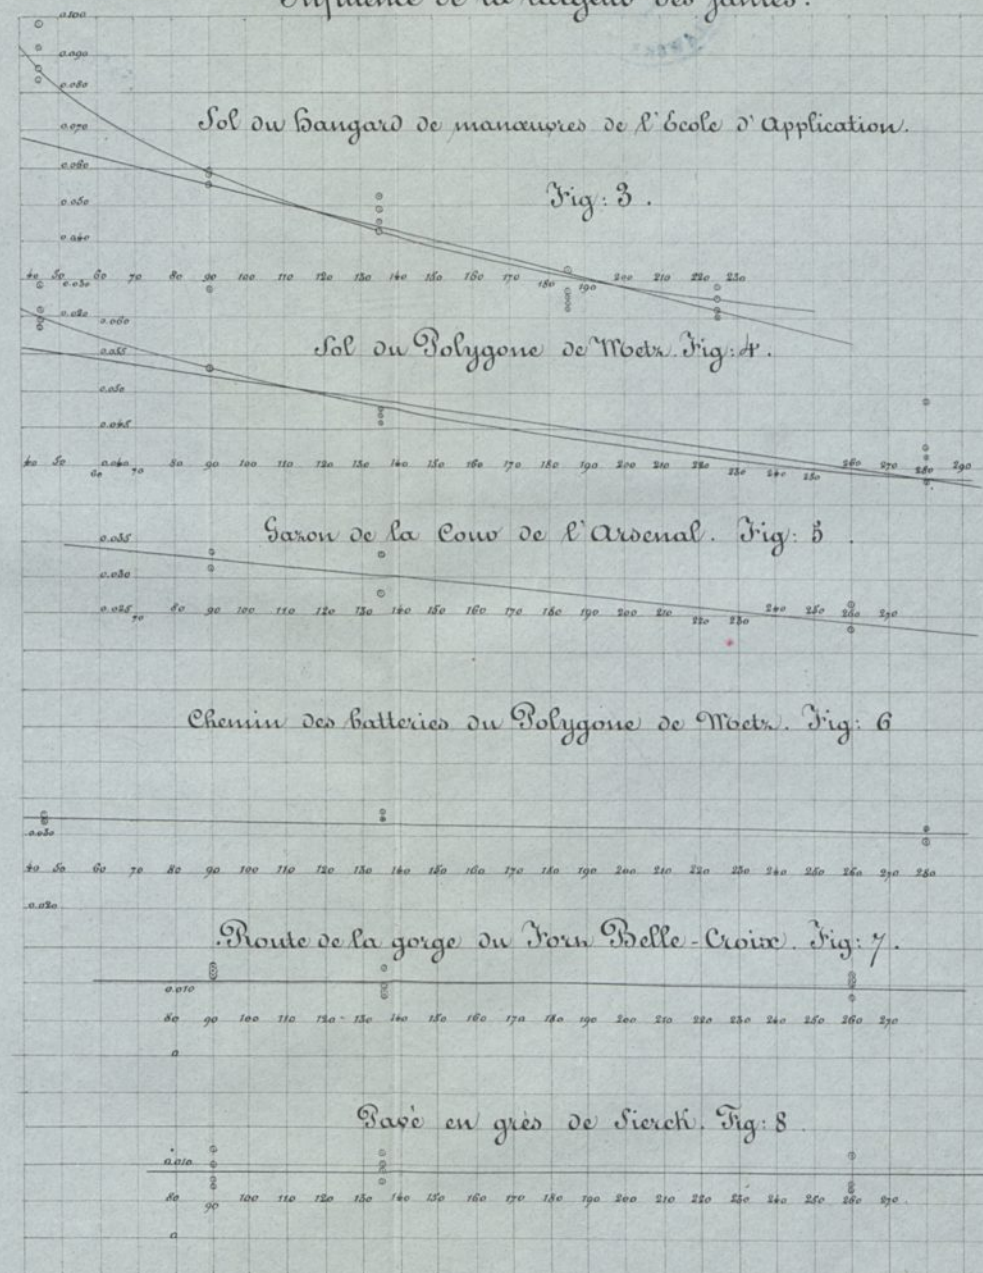 Influence de la largeur des jantes.
0.100
0.090
0.080
Sol du hangard de manœuvres de l'École d'Application.
0.070
0.060
Fig: 3.
0.050
0.040
40 50 60 70 80 90 100 110 120 130 140 150 160 170 180 190 200 210 220 230
0.030
0.020
0.060
Sol du Polygone de Metz. Fig: 4.
0.055
0.050
0.045
40 50 0.040 60 70 80 90 100 110 120 130 140 150 160 170 180 190 200 210 220 230 240 250 260 270 280 290
Gazon de la Cour de l'Arsenal. Fig: 5
0.035
0.030
0.025 70 80 90 100 110 120 130 140 150 160 170 180 190 200 210 220 230 240 250 260 270
Chemin des batteries du Polygone de Metz. Fig: 6
0.030
40 50 60 70 80 90 100 110 120 130 140 150 160 170 180 190 200 210 220 230 240 250 260 270 280
0.020
Route de la gorge du Forn Belle-Croix. Fig: 7.
0.010
80 90 100 110 120 130 140 150 160 170 180 190 200 210 220 230 240 250 260 270
0
Pavé en grès de Sierck. Fig: 8
0.010
80 90 100 110 120 130 140 150 160 170 180 190 200 210 220 230 240 250 260 270
0